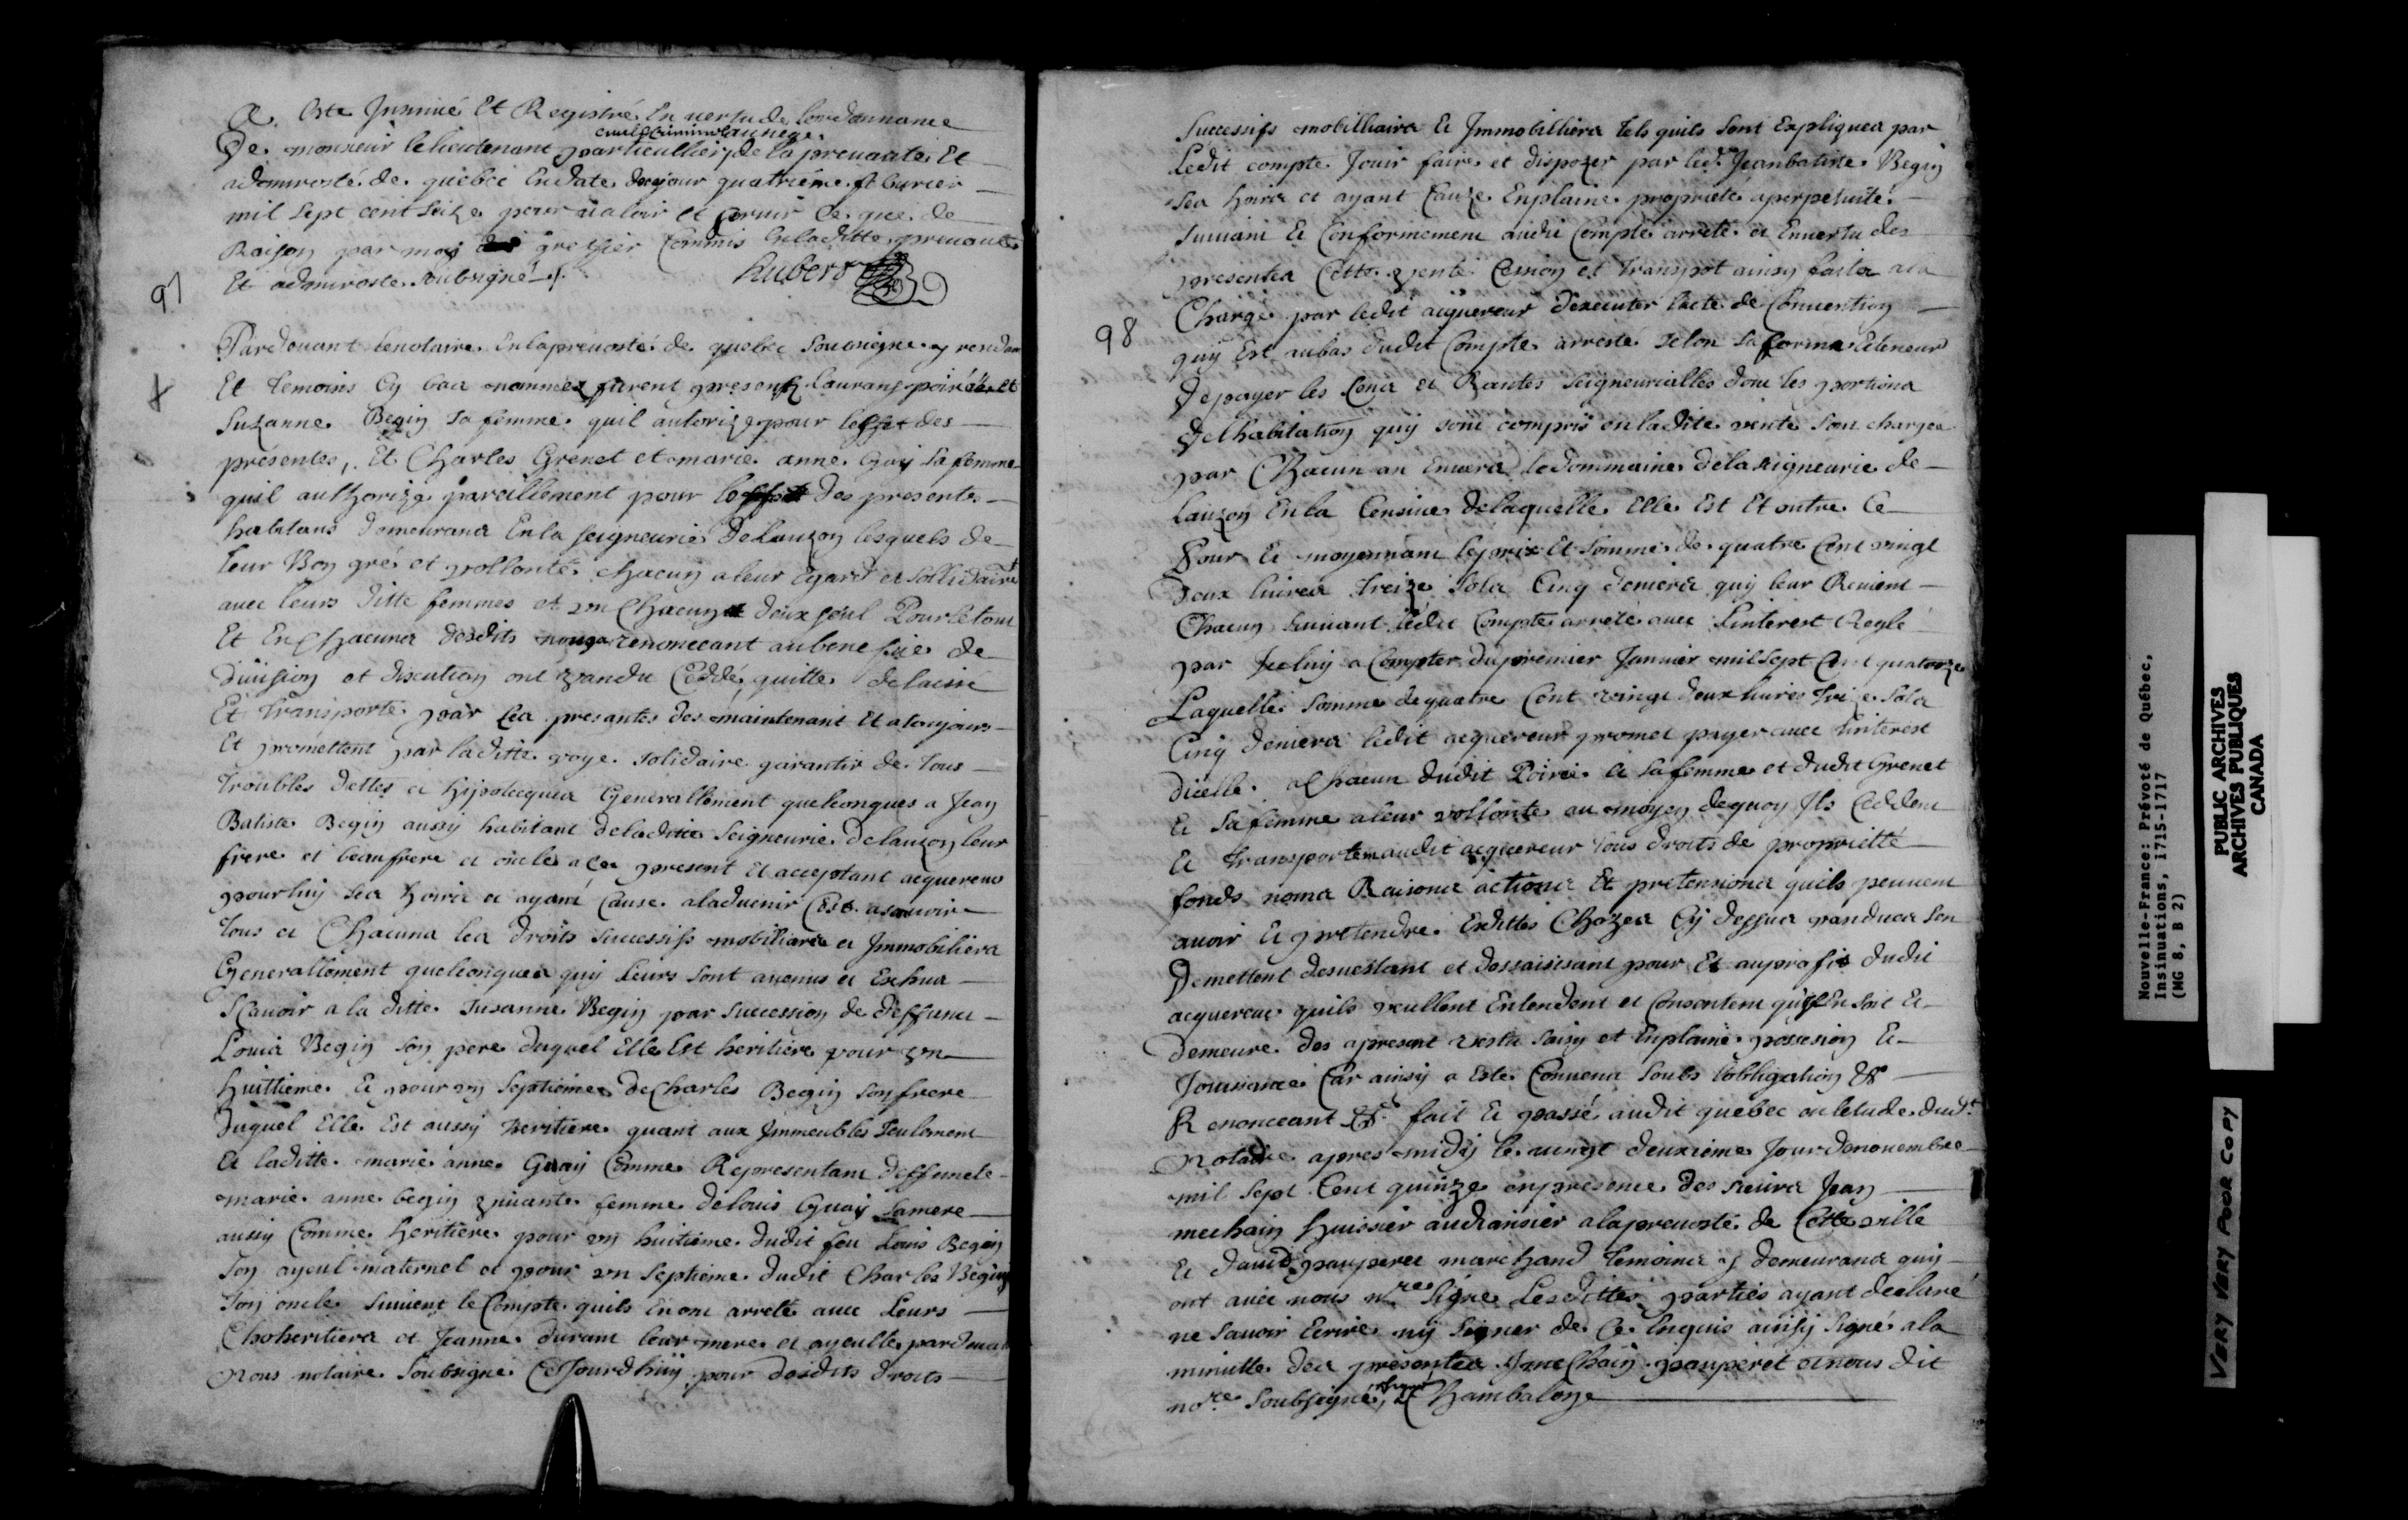 A Este Insinué Et Registré En vertu de lordonnance
civil & Criminel au siege
De monsieur le lieutenant particullier, de la prevauté Et
admirosté de quebec En date du jour quatriéme febvrier
mil sept cent seize pour valoir et servir Ce que de
Raison par moy greffier Commis En laditte prevauté
Et admirosté soubsigné
Hubert
97
Pardevant le notaire En la prevosté de quebec Sousigné y rendant
Et Temoins Cy bas nommez furent presents Laurans poiré et
Suzanne Begin sa femme quil autorize pour leffet des
présentes, Et Charles Grenet et marie anne Guay sa femme
quil authorize pareillement pour leffet des presentes
habitans demeurans En la seigneurie De Lauzon lesquels de
leur Bon gré et vollonté chacun a leur Egard et sollidairemt
avec leurs ditte femmes et un Chacun deux seul Pour le tout
Et En Chacuns desdits noms renonceant au benefice de
Division et discution ont vandu Ceddé, quitté delaissé
Et Transporté par les presantes des maintenant Et a toujours
Et promettent par laditte voye solidaire garantir de tous
Troubles dettes et hipotecques Generallement quelconques a Jean
Batiste Begin aussy habitant de ladite Seigneurie de lauzon leur
frere et beaufrere et oncle a ce present Et acceptant acquereur
pour luy ses hoirs et ayant Cause a ladvenir Cest asavoir
tous et Chacuns les droits successifs mobiliairs et Immobiliers
Generallement quelconques quy Leurs sont avenus et Eschus
Scavoir a la ditte Susanne Begin par succession de deffunct
Louis Begin son pere duquel Elle Est heritiere pour un
huittieme Et pour un septieme de Charles Begin son frere
Duquel Elle Est aussy heritiere quant aux Immeubles seulement
Et laditte marie anne Guay Comme Representant deffuncte
marie anne begin vivante femme de louis Guay sa mere
aussy Comme heritiere pour un huitieme dudit feu Louis Begin
son ayeul maternel et pour un septieme dudit Charles Begin
son oncle suivent le Compte quils En ont arresté avec Leurs
Choheritiers et Jeanne durant leur mere et ayeulle pardevant
Nous notaire soubsigné Cejourdhuy pour desdits droits
98
Successifs mobilliairs Et Immobilliers tels quils sont Expliquez par
Ledit compte Jouir faire et disposer par led. Jean batiste Begin
ses hoirs et ayant Cauze En plaine proprieté a perpetuité
suivant Et Conformement audit Compte arreté et En vertu des
presentes Cette vente Cession et transpot ainsy faites a la
Charge par ledit acquereur dexecuter lacte de Convention
quy Est au bas dudit Compte arresté selon sa forme Et teneur
De payer les Cens et Rantes seigneurialles dont les portions
De lhabitation quy sont compris en ladite vente sont chargés
par Chacun an Envers le dommaine de la seigneurie de
Lauzon En la Censive de laquelle Elle Est Et outre Ce
Pour Et moyennant le prix Et somme de quatre Cent vingt
Deux livres treize sols Cinq deniers quy leur Revient
Chacun suivant ledit Compte arreté avec Linterest Reglé
par Jceluy a Compter du premier Janvier mil sept Cent quatorze
Laquelle somme de quatre Cent vingt deux livres treize sols
Cinq deniers ledit acquereur promet payer avec linterest
dicelle a Chacun dudit Poiré Et sa femme et dudit Grenet
Et sa femme a leur vollonté au moyen de quoy Ils Ceddent
Et transportent audit acquereur tous droits de proprietté
fonds noms Raisons actions Et pretensions quils peuvent
avoir Et pretendre Esdittes Chozes Cy dessus vandues sen
Demettent desvestant et dessaisisant pour Et au profit dudit
acquereur quils veullent Entendent et Consentent quil En soit Et
demeure des apresent vestu saisy et En plaine possesion Et
Jouissance Car ainsy a Esté Convenu soubs lobligation &c
Renonceant &c fait Et passé audit quebec en letude dudt.
Notaire apres midy le vingt deuxieme Jour de novembre
mil sept Cent quinze en presence des sieurs Jean
mechain huissier audiansier a la prevosté de Cette ville
Et david pauperet marchand temoins y demeurans quy
ont avec nous nre signé Lesdittes parties ayant declaré
ne savoir Ecrire ny signer de Ce Enquis ainsy signé a la
minutte des presentes J mechain pauperet et nous dit
nore soubsigné, signé Chambalon
Nouvelle-France: Prévoté de Québec,
Insinuations, 1715-1717
(MG 8, B 2)
PUBLIC ARCHIVES
ARCHIVES PUBLIQUES
CANADA
VERY VERY POOR COPY